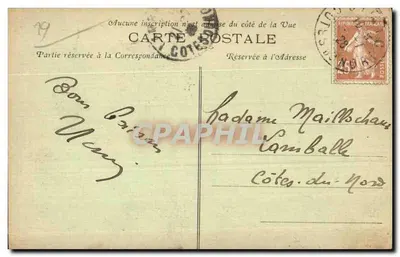 19
Aucune inscription n'est admise du côté de la Vue
CARTE POSTALE
Partie réservée à la Correspondance
Réservée à l'Adresse
COTES
NORD
Bons baisers
Madame
Lamballe
Côtes-du-Nord